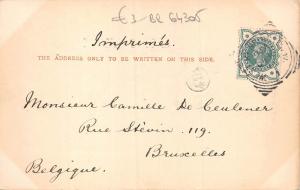 £3 BR 64305
Imprimés.
THE ADDRESS ONLY TO BE WRITTEN ON THIS SIDE.
Monsieur Camille De Ceulener
Rue Stévin. 119.
Bruxelles
Belgique.